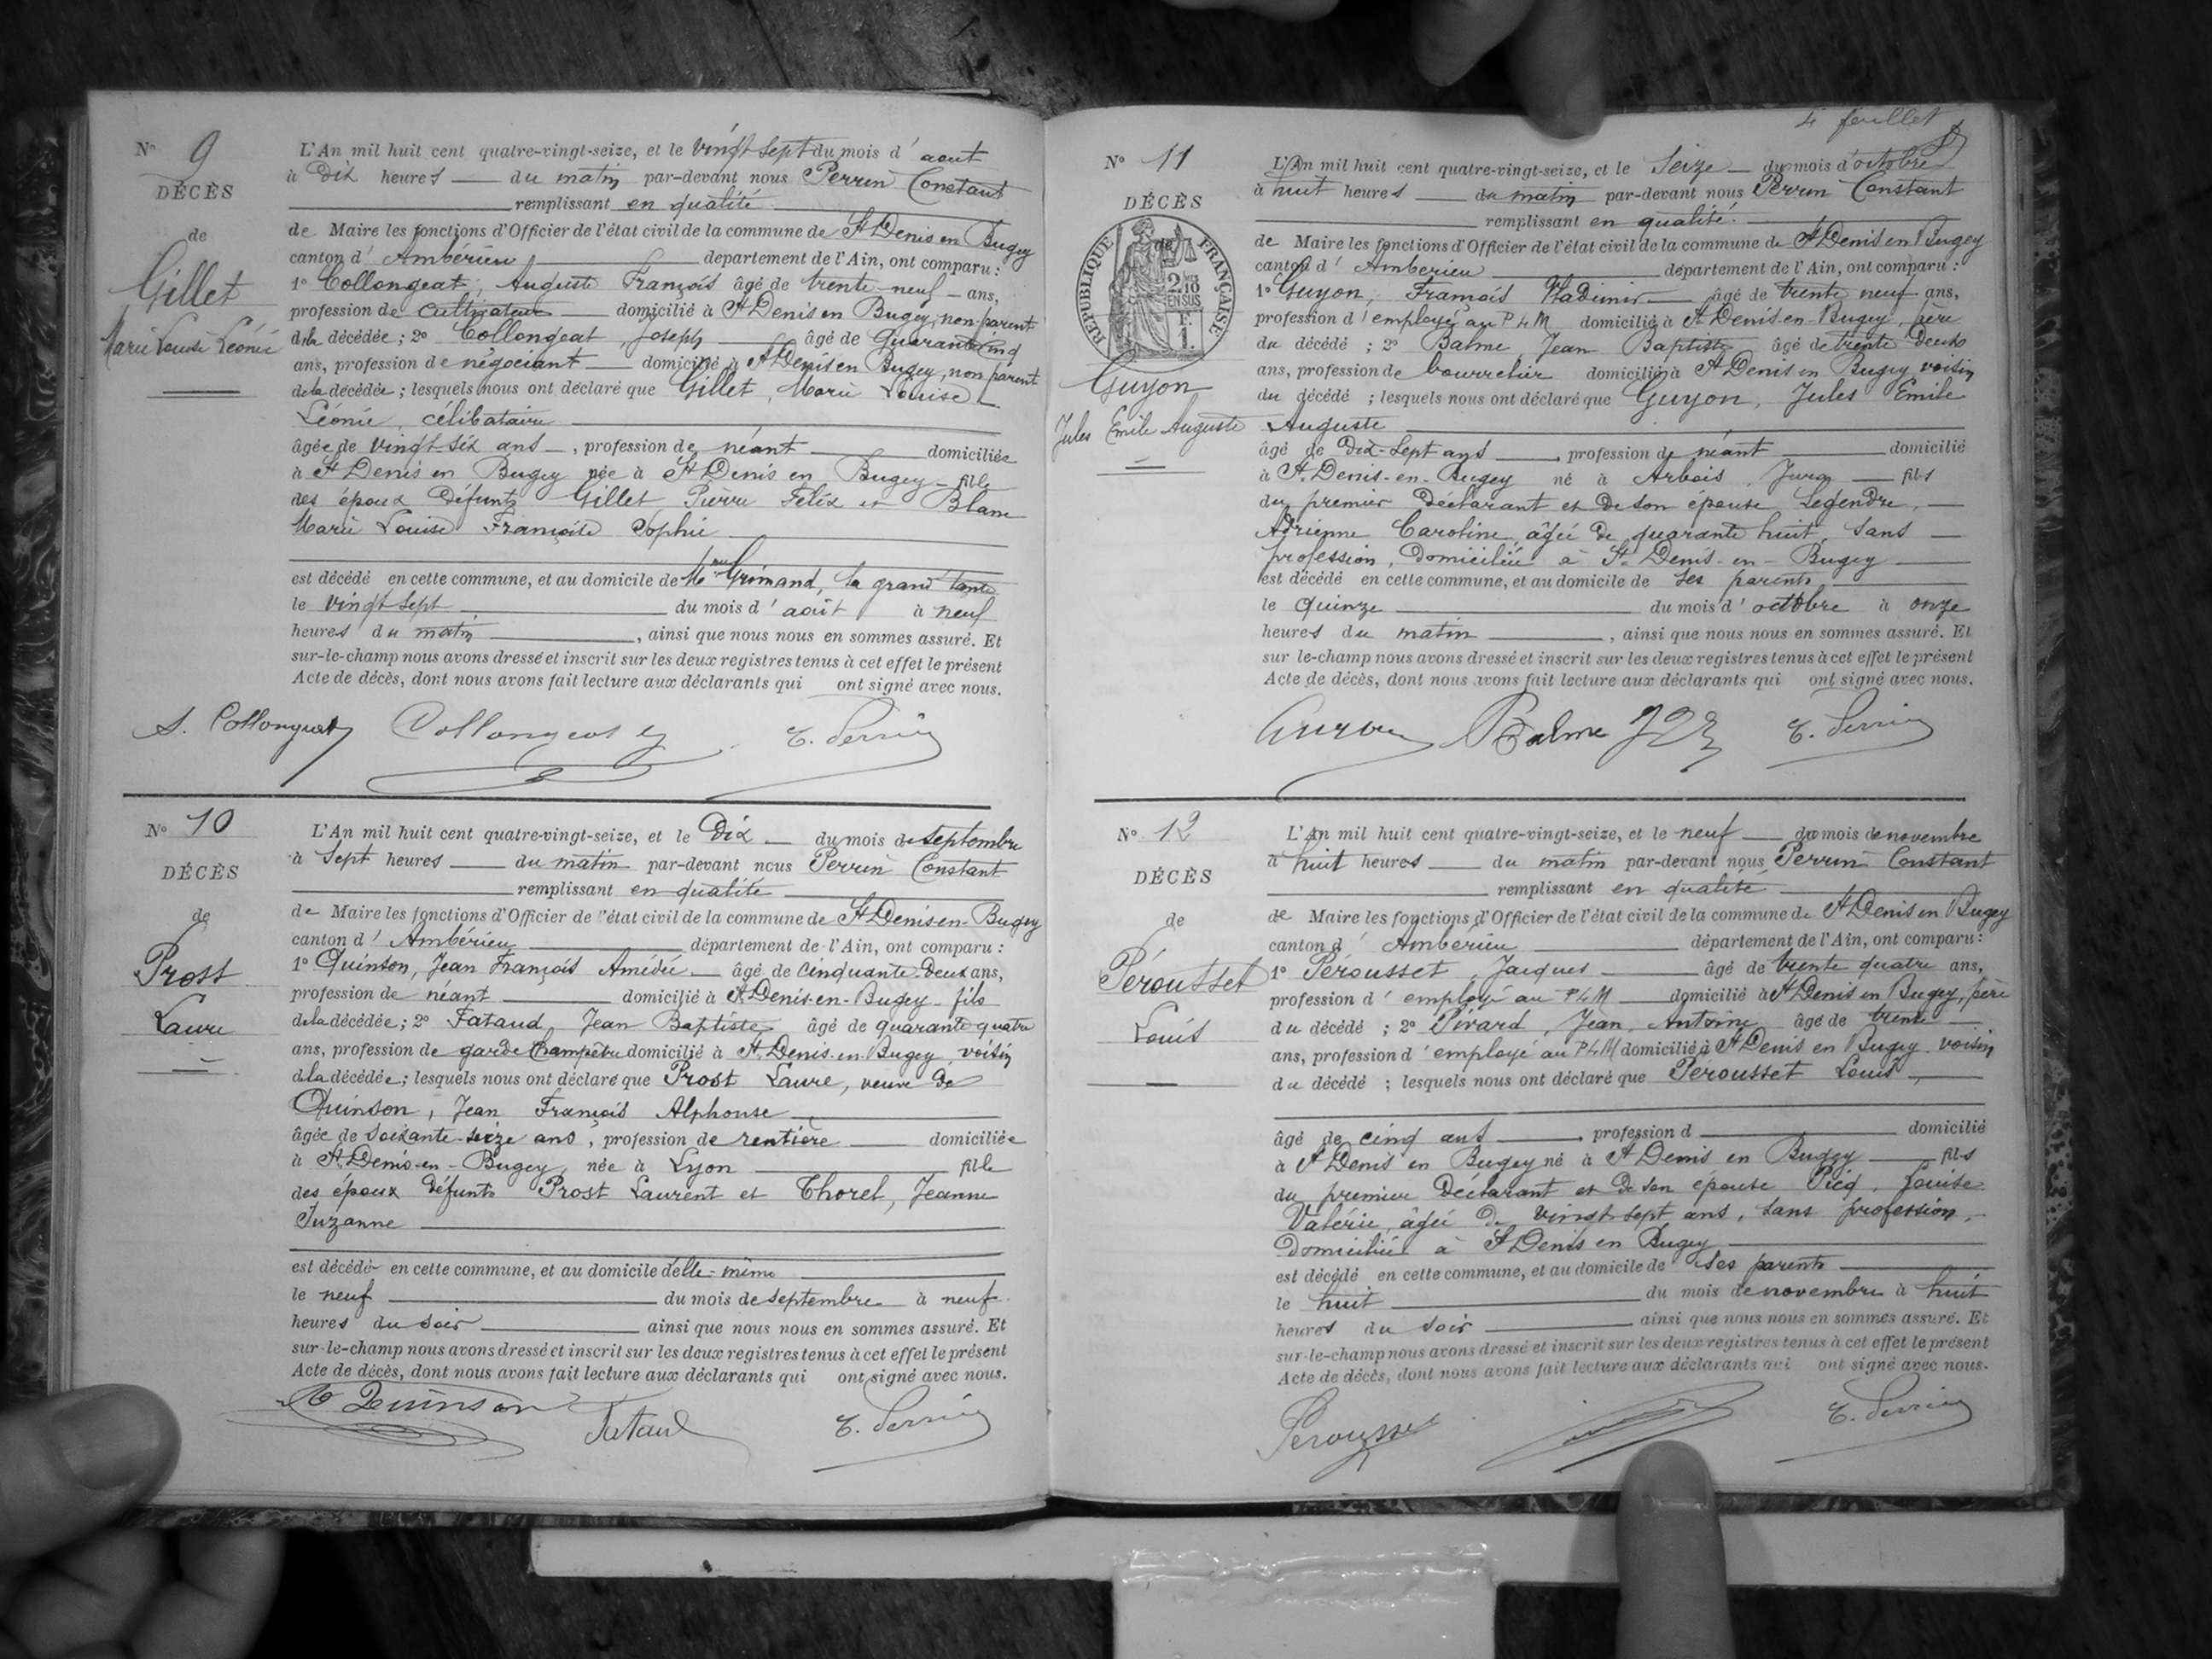 Nº 9
DÉCÈS
de
Gillet
Marie Louise Léonie
L'An mil huit cent quatre-vingt-seize, et le vingt sept du mois d'aout
à Dix heures du matin par-devant nous Perrin Constant
remplissant en qualité
de Maire les fonctions d'Officier de l'état civil de la commune de St Denis en Bugey
canton d'Ambérieu département de l'Ain, ont comparu :
1º Collongeat, Auguste François âgé de trente neuf ans,
profession de cultivateur domicilié à St Denis en Bugey, non parent
de la décédée ; 2º Collongeat, Joseph âgé de Quarante cinq
ans, profession de négociant domicilié à St Denis en Bugey, non parent
de la décédée ; lesquels nous ont déclaré que Gillet, Marie Louise
Léonie, célibataire
âgée de vingt-six ans, profession de néant domiciliée
à St Denis en Bugey née à St Denis en Bugey fille
des époux Défunts Gillet Pierre Félix et Blanc
Marie Louise Françoise Sophie
est décédé en cette commune, et au domicile de Mme Grimand, sa grand'tante
le vingt sept du mois d'août à neuf
heures du matin, ainsi que nous nous en sommes assuré. Et
sur-le-champ nous avons dressé et inscrit sur les deux registres tenus à cet effet le présent
Acte de décès, dont nous avons fait lecture aux déclarants qui ont signé avec nous.
A. Collongeat Collongeat C. Perrin
Nº 10
DÉCÈS
de
Prost
Laure
L'An mil huit cent quatre-vingt-seize, et le Dix du mois de septembre
à sept heures du matin par-devant nous Perrin Constant
remplissant en qualité
de Maire les fonctions d'Officier de l'état civil de la commune de St Denis-en-Bugey
canton d'Ambérieu département de l'Ain, ont comparu :
1º Quinson, Jean François Amédée âgé de Cinquante-Deux ans,
profession de néant domicilié à St Denis-en-Bugey fils
de la décédée ; 2º Fataud Jean Baptiste âgé de quarante quatre
ans, profession de garde champêtre domicilié à St Denis-en-Bugey, voisin
de la décédée ; lesquels nous ont déclaré que Prost Laure, veuve de
Quinson, Jean François Alphonse
âgée de soixante-seize ans, profession de rentière domiciliée
à St Denis-en-Bugey, née à Lyon fille
des époux défunts Prost Laurent et Thorel, Jeanne
Suzanne
est décédé en cette commune, et au domicile d'elle-même
le neuf du mois de septembre à neuf
heures du soir ainsi que nous nous en sommes assuré. Et
sur-le-champ nous avons dressé et inscrit sur les deux registres tenus à cet effet le présent
Acte de décès, dont nous avons fait lecture aux déclarants qui ont signé avec nous.
Quinson Fataud C. Perrin
4 feuillet
Nº 11
DÉCÈS
de
RÉPUBLIQUE FRANÇAISE
2/10 EN SUS
F. 1.
Guyon
Jules Emile Auguste
L'An mil huit cent quatre-vingt-seize, et le Seize du mois d'octobre
à huit heures du matin par-devant nous Perrin Constant
remplissant en qualité
de Maire les fonctions d'Officier de l'état civil de la commune de St Denis en Bugey
canton d'Amberieu département de l'Ain, ont comparu :
1º Guyon, François Vladimir âgé de trente neuf ans,
profession d'employé au PLM domicilié à St Denis-en-Bugey, père
du décédé ; 2º Balme Jean Baptiste âgé de trente Deux
ans, profession de bourrelier domicilié à St Denis en Bugey voisin
du décédé ; lesquels nous ont déclaré que Guyon, Jules Emile
Auguste
âgé de Dix-sept ans, profession de néant domicilié
à St Denis-en-Bugey né à Arbois, Jura fils
du premier Déclarant et de son épouse Legendre,
Adrienne Caroline, âgée de quarante huit, sans
profession, Domiciliée à St Denis-en-Bugey
est décédé en cette commune, et au domicile de ses parents
le Quinze du mois d'octobre à onze
heures du matin, ainsi que nous nous en sommes assuré. Et
sur le-champ nous avons dressé et inscrit sur les deux registres tenus à cet effet le présent
Acte de décès, dont nous avons fait lecture aux déclarants qui ont signé avec nous.
Guyon Balme C. Perrin
Nº 12
DÉCÈS
de
Pérousset
Louis
L'An mil huit cent quatre-vingt-seize, et le neuf du mois de novembre
à huit heures du matin par-devant nous Perrin Constant
remplissant en qualité
de Maire les fonctions d'Officier de l'état civil de la commune de St Denis en Bugey
canton d'Amberieu département de l'Ain, ont comparu :
1º Pérousset, Jacques âgé de trente quatre ans,
profession d'employé au PLM domicilié à St Denis en Bugey, père
du décédé ; 2º Pivard, Jean Antoine âgé de trente
ans, profession d'employé au PLM domicilié à St Denis en Bugey voisin
du décédé ; lesquels nous ont déclaré que Perousset Louis,
âgé de cinq ans, profession d domicilié
à St Denis en Bugey né à St Denis en Bugey fils
du premier Déclarant et de son épouse Picq, Louise
Valérie, âgée de vingt sept ans, sans profession,
Domiciliée à St Denis en Bugey
est décédé en cette commune, et au domicile de ses parents
le huit du mois de novembre à huit
heures du soir ainsi que nous nous en sommes assuré. Et
sur-le-champ nous avons dressé et inscrit sur les deux registres tenus à cet effet le présent
Acte de décès, dont nous avons fait lecture aux déclarants qui ont signé avec nous.
Perousset C. Perrin